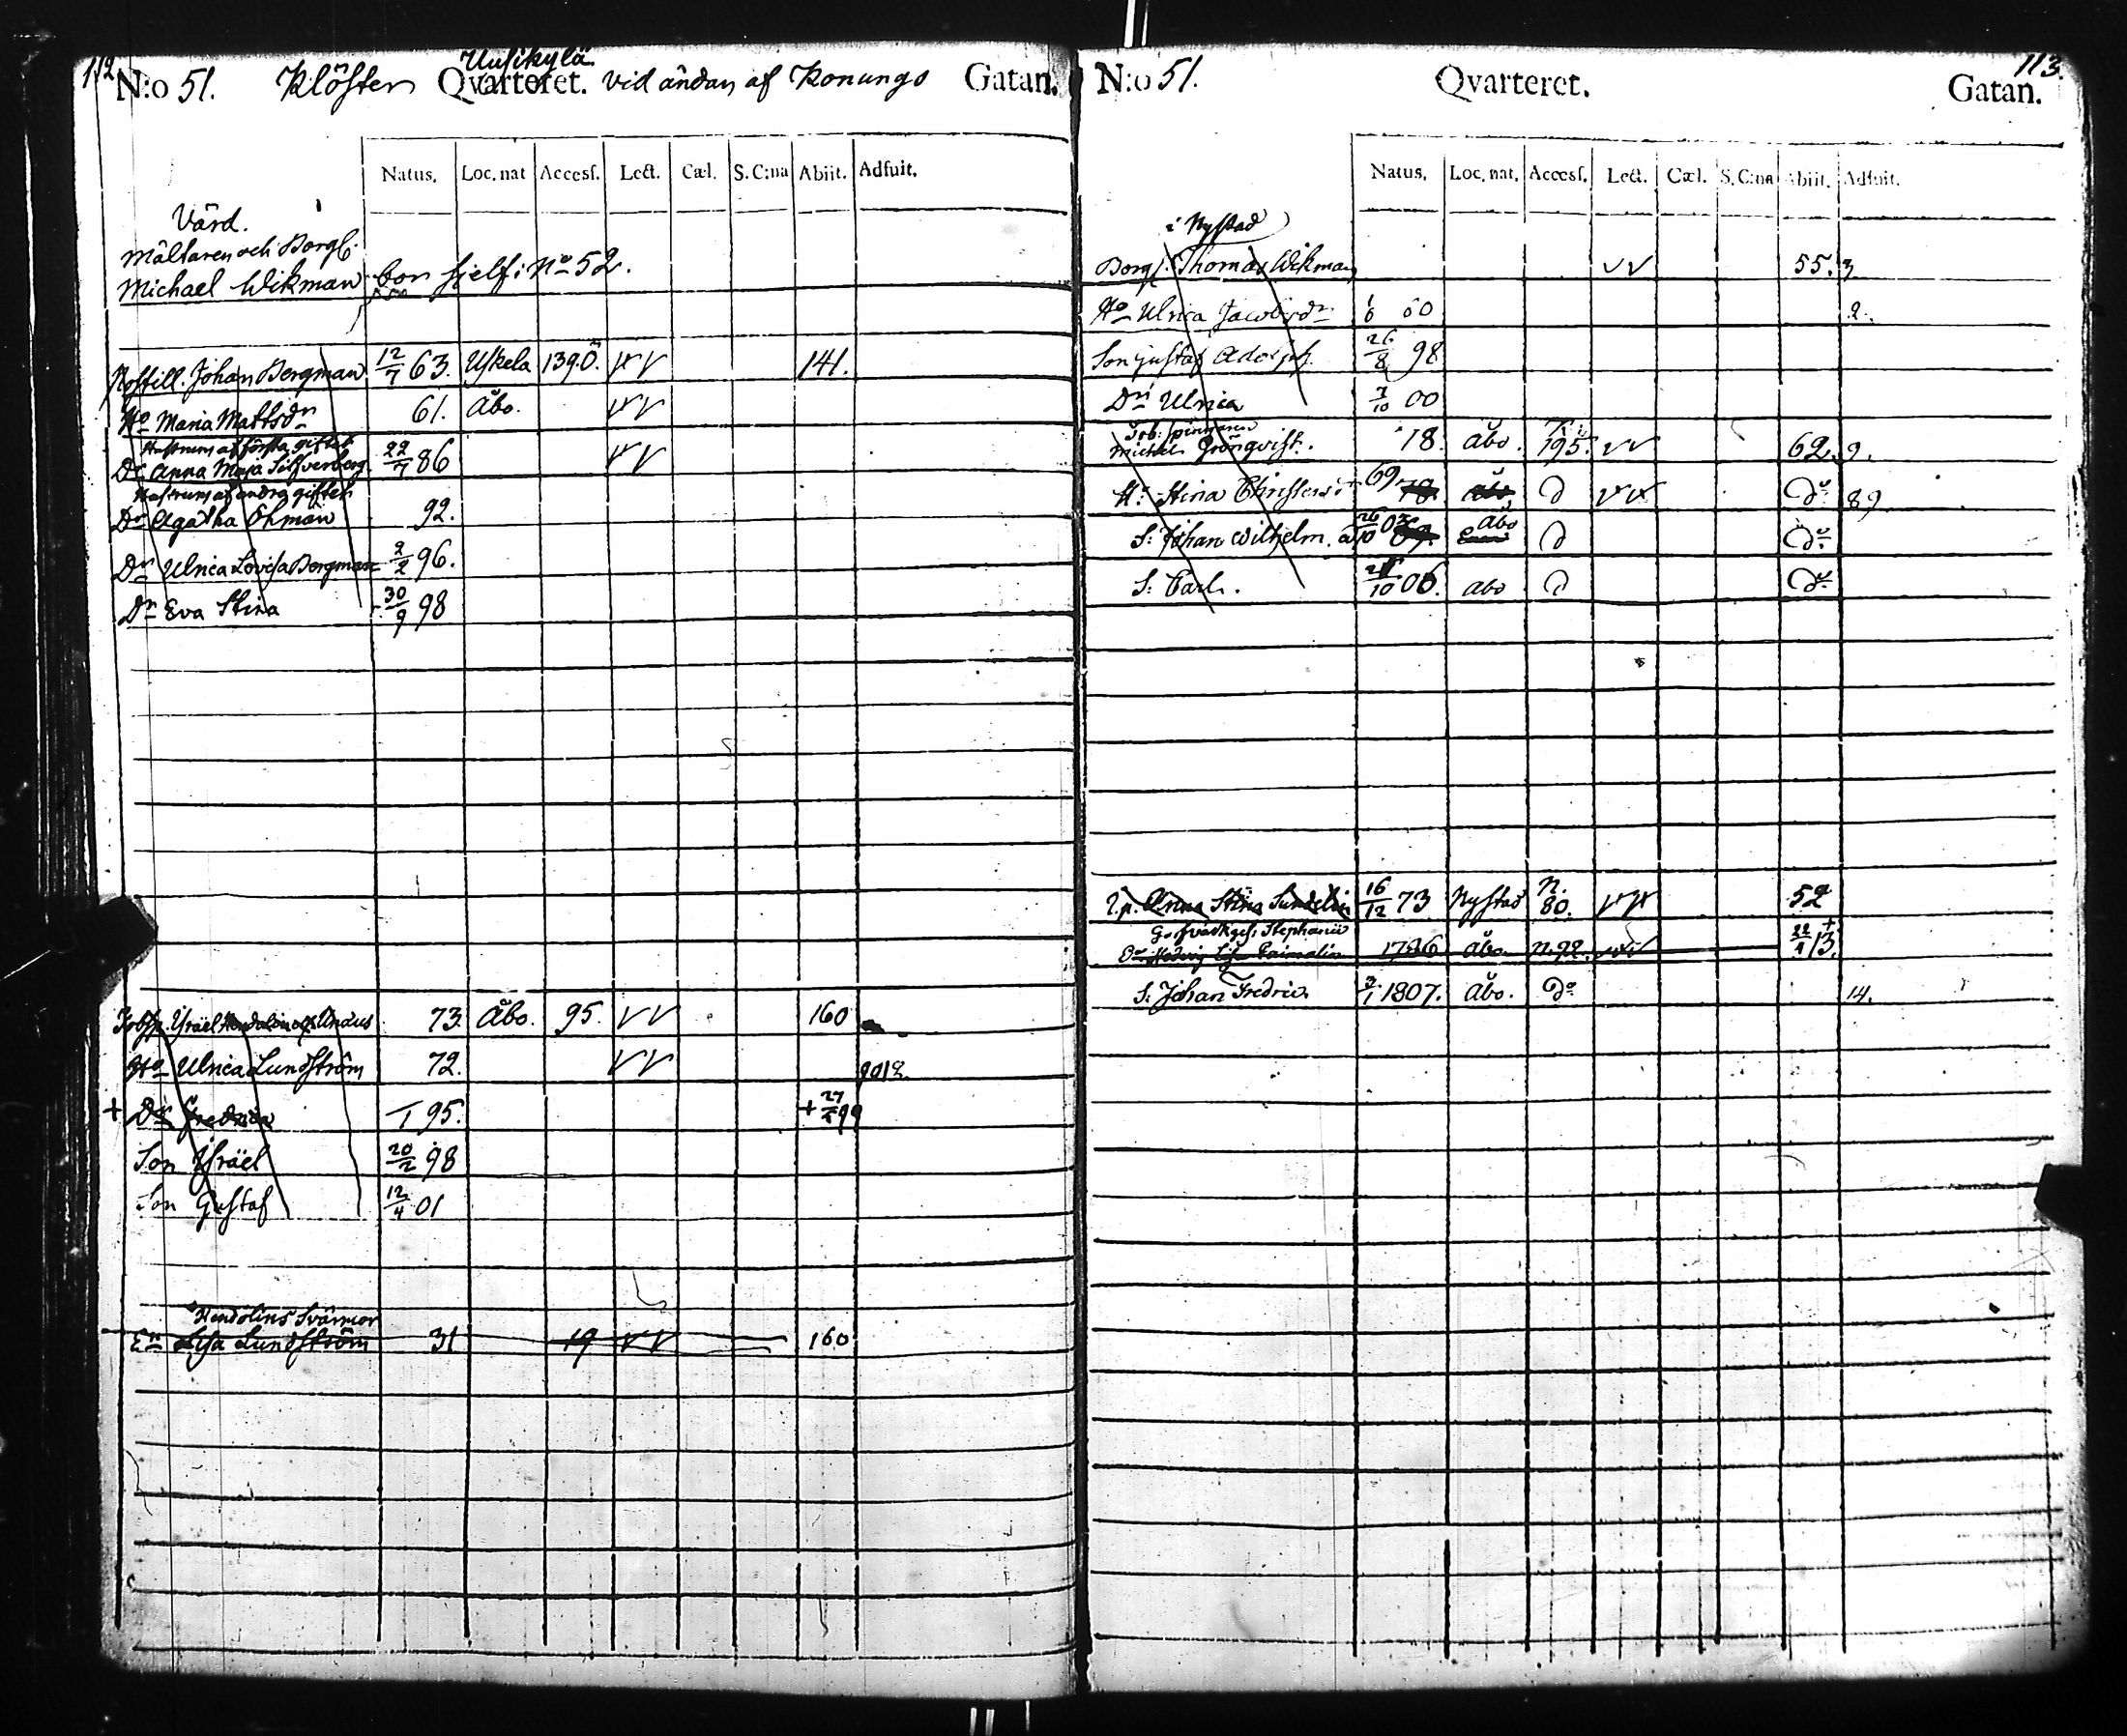 112
Uusikylä
N:o 51. Klöster Qvarteret. vid ändan af Konungs Gatan.
Natus. Loc. nat Accesf. Lect. Cæl. S. C:na Abiit. Adfuit.
Värd.
Mältaren och Borgl.
Michael Wikman bor sjelf i No 52.
Postill. Johan Bergman 12/7 63. Uskela 139.Ö. VV 141.
Ho Maria Mattsdr 61. Åbo. VV
Hustruns af första giftet
Dr Anna Maja Silfverberg 22/7 86 VV
Hustruns af andra giftet
Dr Agatha Öhman 92.
Dr Ulrica Lovisa Bergman 2/2 96.
Dr Eva Stina 30/9 98
Yräel Hendolin 73. Åbo. 95. VV 160
Ho Ulrica Lundström 72. VV
+ Dr Fredrica 1 95. + 27/5 99
Son Ysräel 20/2 98
Son Gustaf 12/4 01
Hendolins Svärmor
En Lisa Lundström 31 19 VV 160
113.
N:o 51. Qvarteret. Gatan.
Natus. Loc. nat. Accesf. Lect. Cæl. S. C:na Abiit. Adfuit.
i Nystad
Borg. Thomas Wikman VV 55. 3
Ho Ulrica Jacobsdr 1/6 60 2.
Son Gustaf Adolph. 26/8 98
Dr Ulrica 7/10 00
Tob: spinnaren
Michel Grönqvist. 78. Åbo. 195. VV 62. 9.
H: Stina Christersdr 69 D VV Do 89
S: Johan Wilhelm. 26/10 03 Åbo D Do
S: Carl. 21/10 06. Åbo D Do
Anna Stina Sundelin 16/12 73 Nystad n. 80. VV 52
Garfvaregs. Stephani
1786 Åbo. n. 92. VV 22/1 13. +
S: Johan Fredric 3/1 1807. Åbo. Do 14.